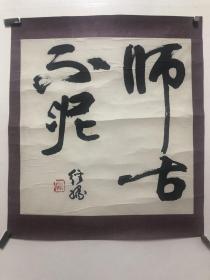 师古
不泥